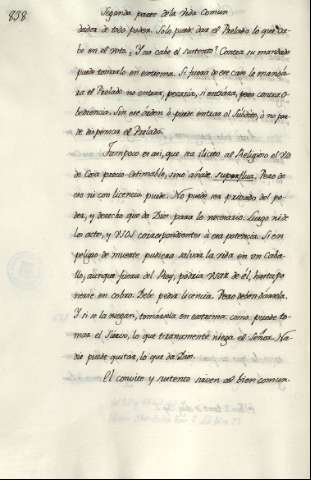 838
Segunda parte de la vida comun
dadera de todo poder. Solo puede dar el Prelado lo que ca-
be en el voto. ¿Y no cabe el sustento? Contra su mandado
puede tomarlo en extrema. Si fuera de ese caso le manda-
ra el Prelado no entrar, pecaria, si entrara, pero contra o-
bediencia. Sin ese orden ò puede entrar el Subdito, ò no pue-
de dispensar el Prelado.
Tampoco es asi, que sea ilicito al Religioso el uso
de Cosa precio estimable, sino añade, superflua. Pero de
esa ni con licencia puede. No puede ser privado del po-
der, y derecho que da Dios para lo necesario. Luego ni de
los actos, y usos correspondientes à esa potencia. Si en
peligro de muerte pudiera salvar la vida en un caba-
llo, aunque fuera del Rey, podria usar de él, hasta po-
nerse en cobro. Debe pedir licencia. Pero deben darsela.
Y si se la niegan, tomarsela en extrema: como puede to-
mar el Siervo, lo que tiranamente niega el Señor. Na-
die puede quitar, lo que da Dios.
El convite y sustento sirven al bien comun.